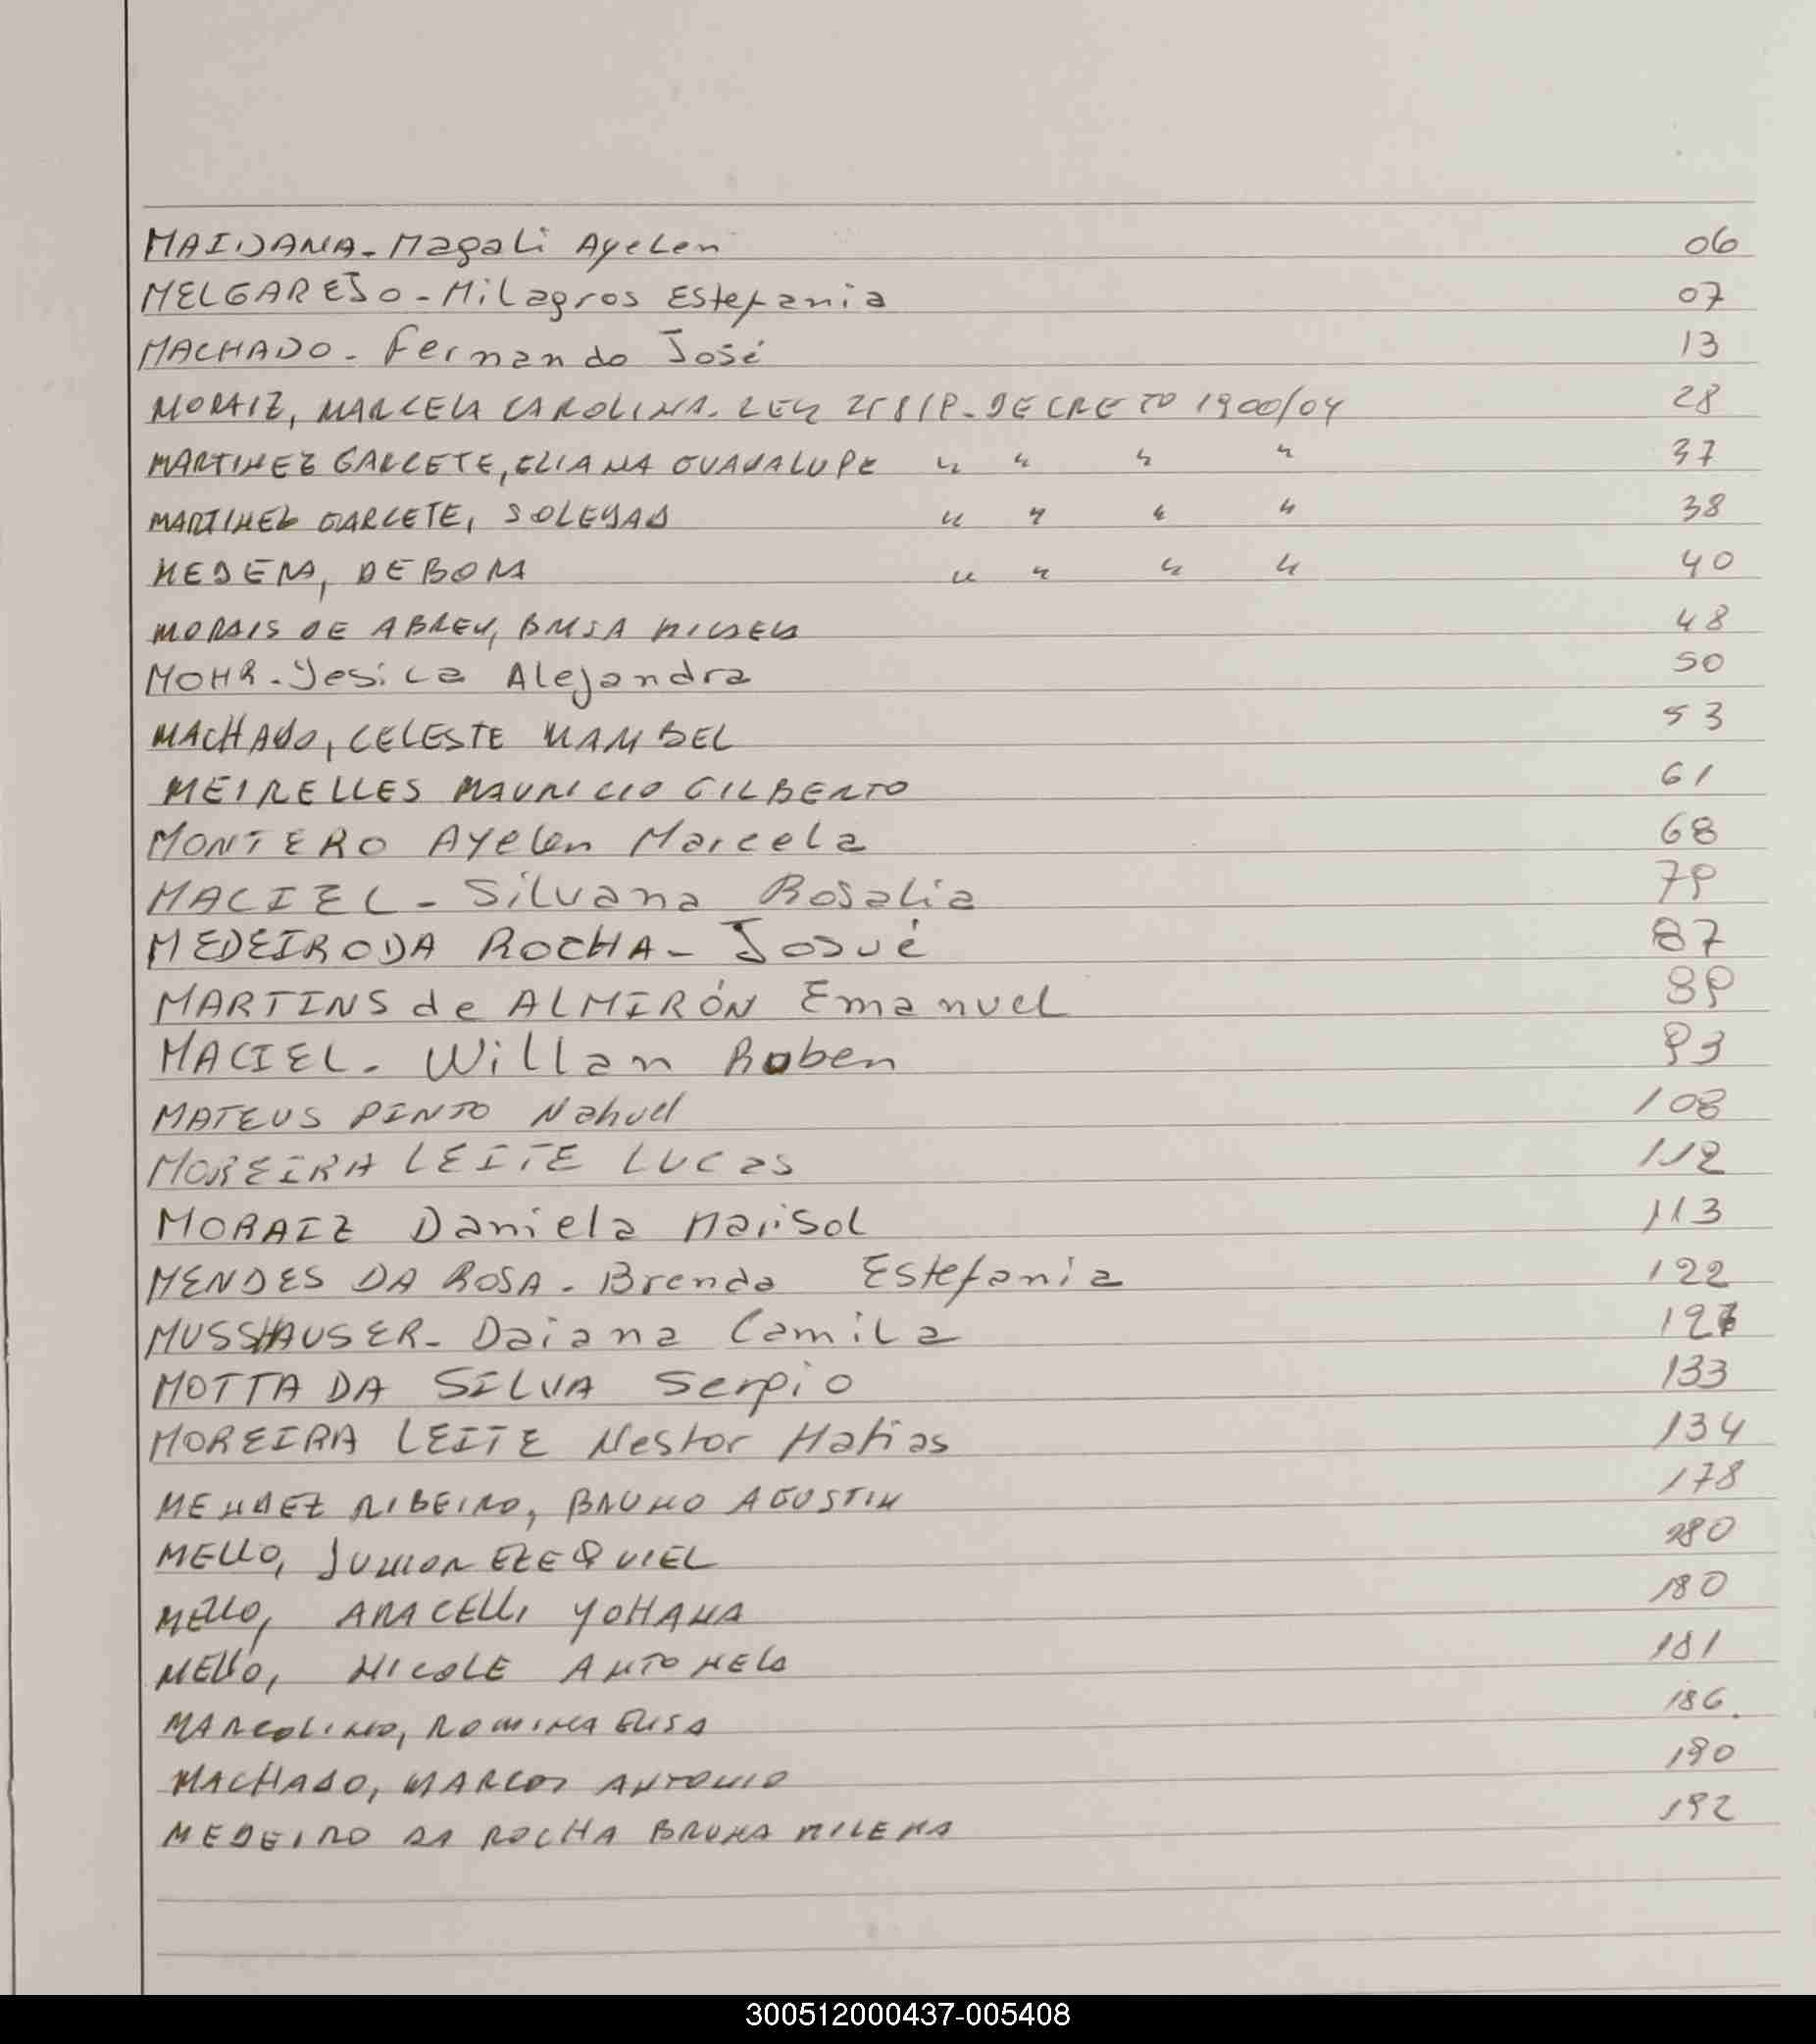 MAIDANA - Magali Ayelen 06
MELGAREJO - Milagros Estefania 07
MACHADO - Fernando José 13
MORAIZ, MARCELA CAROLINA. LEY 25818 - DECRETO 1900/04 28
MARTINEZ GARCETE, ELIANA GUADALUPE " " " " 37
MARTINEZ GARCETE, SOLEDAD " " " " 38
MEDERA, DEBORA " " " " 40
MORAIS DE ABREU, 48
MOHR - Yesica Alejandra 50
MACHADO, CELESTE MARIBEL 53
MEIRELLES MAURICIO GILBERTO 61
MONTERO Ayelen Marcela 68
MACIEL - Silvana Rosalia 79
MEDEIRO DA ROCHA - Josué 87
MARTINS de ALMIRÓN Emanuel 89
MACIEL - Willan Roben 93
MATEUS PINTO Nahuel 108
MOREIRA LEITE Lucas 112
MORAIZ Daniela Marisol 113
MENDES DA ROSA - Brenda Estefania 122
MUSSHAUSER - Daiana Camila
MOTTA DA SILVA Sergio 133
MOREIRA LEITE Nestor Matias 134
MENDEZ RIBEIRO, BRUNO AGUSTIN 178
MELLO, JUNIOR EZEQUIEL
MELLO, ARACELLI YOHANA 180
MELLO, NICOLE ANTONELA 181
MARCOLINO, ROMINA ELISA 186.
MACHADO, MARCOS ANTONIO 190
MEDEIRO DA ROCHA BRUNA MILENA 192
300512000437-005408